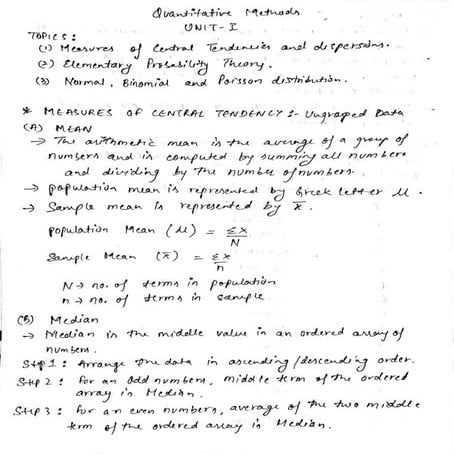 Quantitative Methods
UNIT-I
TOPICS:
(1) Measures of Central Tendencies and dispersions.
(2) Elementary Probability Theory.
(3) Normal, Binomial and Poisson distribution.
* MEASURES OF CENTRAL TENDENCY:- Ungrouped Data
(A) MEAN
→ The arithmetic mean is the average of a group of
numbers and is computed by summing all numbers
and dividing by the number of numbers.
→ population mean is represented by Greek letter μ.
→ Sample mean is represented by x̄.
Population Mean (μ) = Σx/N
Sample Mean (x̄) = Σx/n
N → no. of terms in population
n → no. of terms in sample
(B) Median
→ Median is the middle value in an ordered array of
numbers.
Step 1: Arrange the data in ascending/descending order.
Step 2: for an odd numbers, middle term of the ordered
array is Median.
Step 3: for an even numbers, average of the two middle
term of the ordered array is Median.